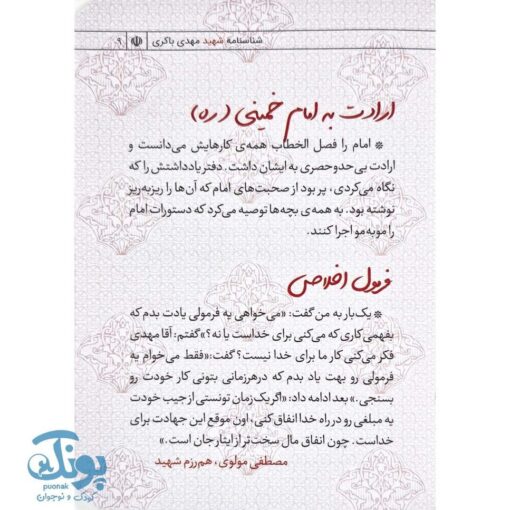 شناسنامه شهید مهدی باکری | ۹
ارادت به امام خمینی (ره)
* امام را فصل الخطاب همه‌ی کارهایش می‌دانست و
ارادت بی‌حدوحصری به ایشان داشت. دفتر یادداشتش را که
نگاه می‌کردی، پر بود از صحبت‌های امام که آن‌ها را ریزبه‌ریز
نوشته بود. به همه‌ی بچه‌ها توصیه می‌کرد که دستورات امام
را موبه‌مو اجرا کنند.
فرمول اخلاص
* یک‌بار به من گفت: «می‌خواهی یه فرمولی یادت بدم که
بفهمی کاری که می‌کنی برای خداست یا نه؟» گفتم: آقا مهدی
فکر می‌کنی کار ما برای خدا نیست؟ گفت: «فقط می‌خوام یه
فرمولی رو بهت یاد بدم که درهرزمانی بتونی کار خودت رو
بسنجی.» بعد ادامه داد: «اگر یک زمان تونستی از جیب خودت
یه مبلغی رو در راه خدا انفاق کنی، اون موقع این جهادت برای
خداست. چون انفاق مال سخت‌تر از ایثار جان است.»
مصطفی مولوی، هم‌رزم شهید
پونک
puonak
کودک و نوجوان